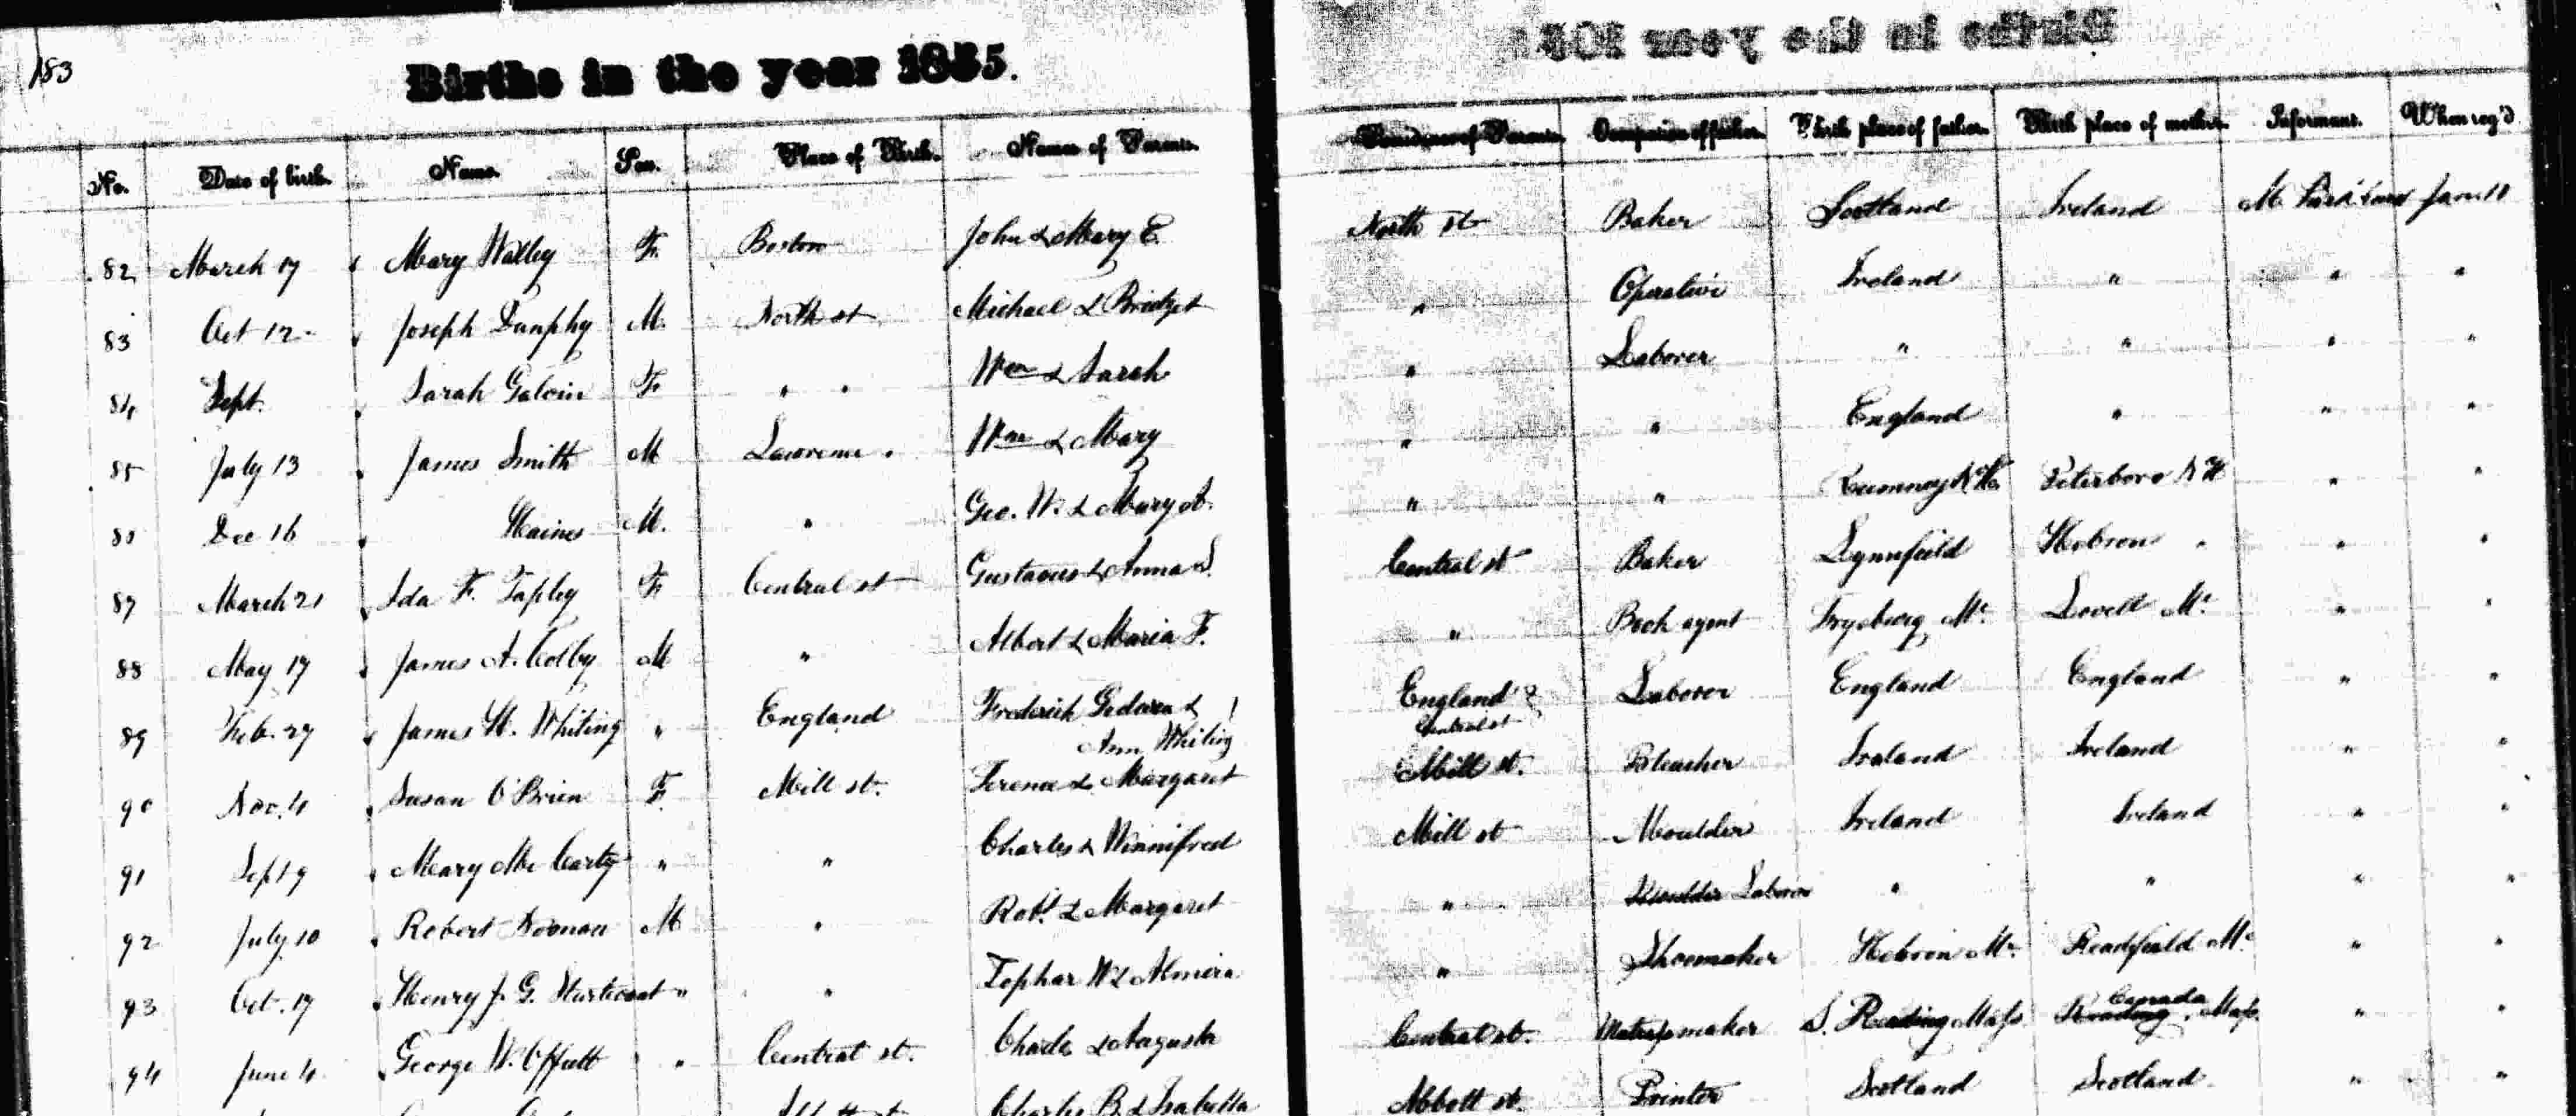 183
Births in the year 1855.
No. Date of birth. Name. Sex. Place of Birth. Names of Parents. Residence of Parents. Occupation of father. Birth place of father. Birth place of mother. Informant. When reg'd
82 March 17 Mary Walley F. Boston John & Mary E. North st Baker Scotland Ireland M. Jan. 11
83 Oct 12 Joseph Dunphy M. North st Michael & Bridget " Operative Ireland " " "
84 Sept. Sarah Galvin F " " Wm & Sarah " Laborer " " " "
85 July 13 James Smith M Lawrence. Wm & Mary " " England " " "
85 Dec 16 Haines M. " Geo. W. & Mary A. " " Rumney N.H. Peterboro N H " "
87 March 21 Ida F. Tapley F Central st Gustavus & Anna S. Central st Baker Lynnfield Hebron " " "
88 May 17 James A. Colby M " Albert & Maria F. " Book agent Fryeburg Me. Lovell Me. " "
89 Feb. 27 James H. Whiting " England Frederick & England Laborer England England " "
Ann Whiting Central st
90 Nov. 4 Susan O'Brien F. Mill st. Terence & Margaret Mill st. Bleacher Ireland Ireland " "
91 Sept 9 Mary Mc Carty " " Charles & Winnifred Mill st Moulder Ireland Ireland " "
92 July 10 Robert Noonan M " Robt. & Margaret " Moulder Laborer " " " "
93 Oct. 17 Henry J. G. Sturtevant " " Zephar W. & Almira " Shoemaker Hebron Me. Readfield Me " "
Canada
94 June 4 George W. Offutt " Central st. Charles & Augusta Central st. Matrass maker S. Reading Mass Reading, Mass. " "
Charles B. & Isabella Abbott st. Printer Scotland Scotland " "